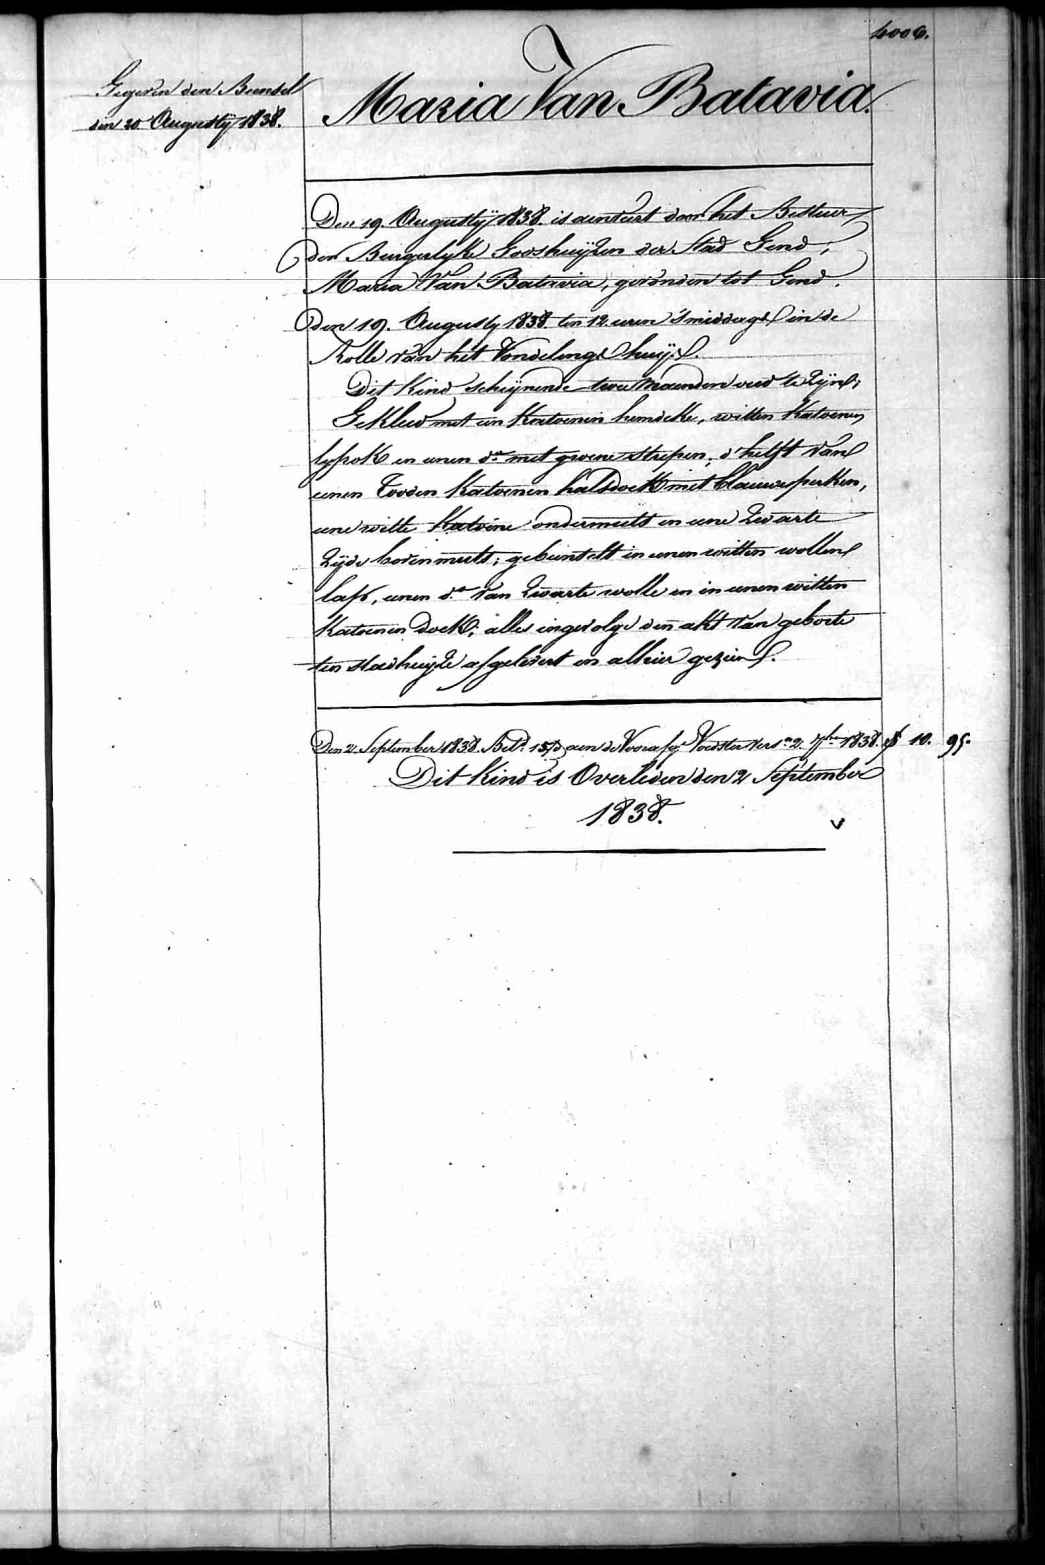 4006.
Gegeven den Bundel
den 20 Augusty 1838.
Maria Van Batavia.
Den 19. Augusty 1838. is aenveert door het Bestuer
der Burgerlyke Godshuijzen der Stad Gend,
Maria Van Batavia, gevonden tot Gend.
den 19. Augusty 1838. ten 12 uren 's middags in de
Rolle van het Vondelings huijs.
Dit kind schijnende twee maenden oud te zijn;
Gekleed met een katoenen hemdeke, witten katoenen
lyfrok en eenen do met groene strepen, d'helft van
eenen rooden katoenen halsdoek met blauwe perken,
eene witte katoene ondermuts en eene zwarte
zijde bovenmuts; gebuntelt in eenen witten wollen
lap, eenen do van zwarte wolle en in eenen witten
katoenen doek; alles ingevolge den akt van geboorte
ten stadhuijze afgelevert en alhier gezien.
Den 2 September 1838. Bet. aen de Voedster 2. 7ber 1838. 10. 95.
Dit Kind is Overleden den 2 September
1838.